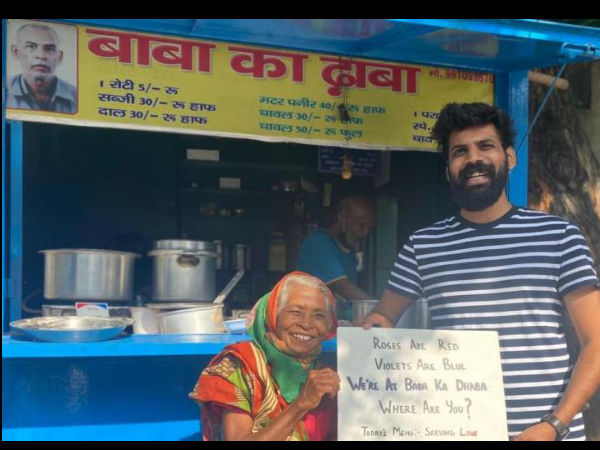 बाबा का ढ़ाबा
1 रोटी 5/- रू
सब्जी 30/- रू हाफ
दाल 30/- रू हाफ
मटर पनीर 40/- रू हाफ
चावल 30/- रू हाफ
चावल 50/- रू फुल
1 परा
स्पे.
चाय
Roses Are Red
Violets Are Blue
We're At Baba Ka Dhaba
Where Are You?
Today's Menu:- Serving Love